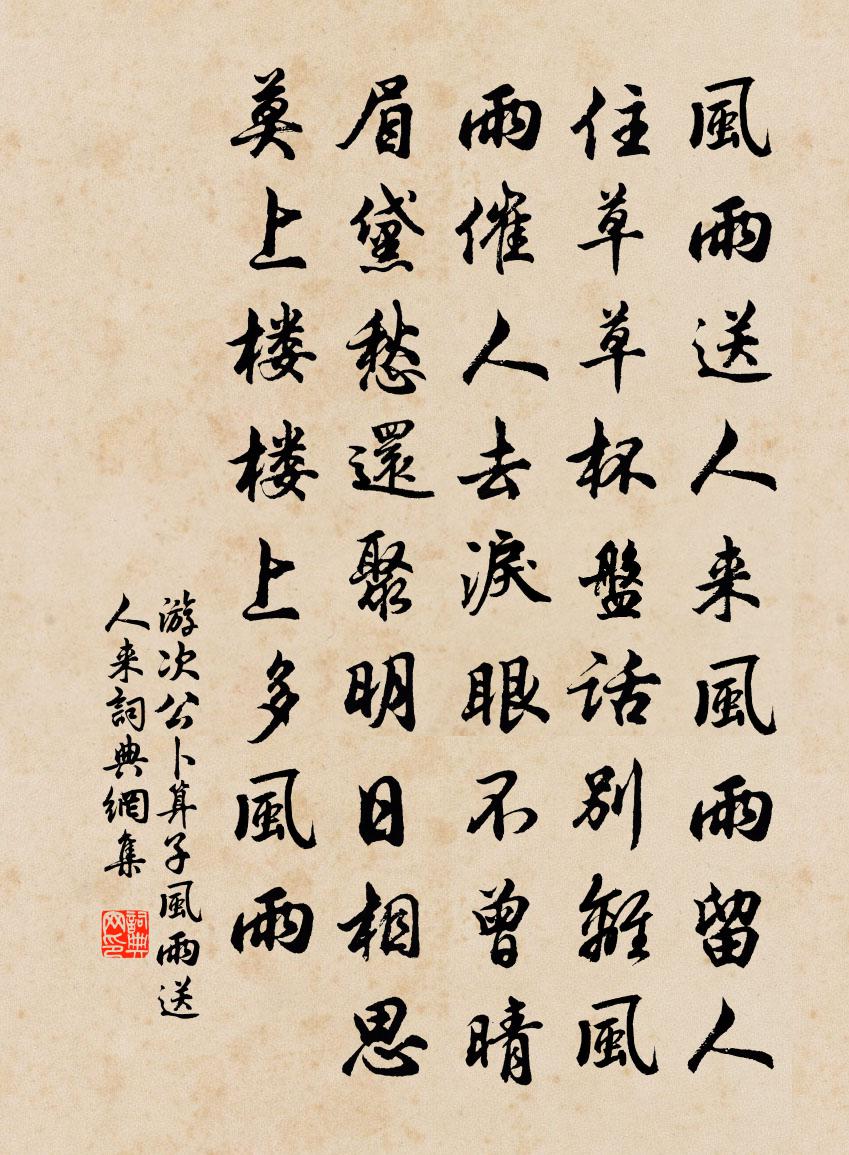 風雨送人来風雨留人
住草草杯盤話別離風
雨催人去淚眼不曾晴
眉黛愁還聚明日相思
莫上楼楼上多風雨
游次公卜算子風雨送
人来詞典網集
詞典网印